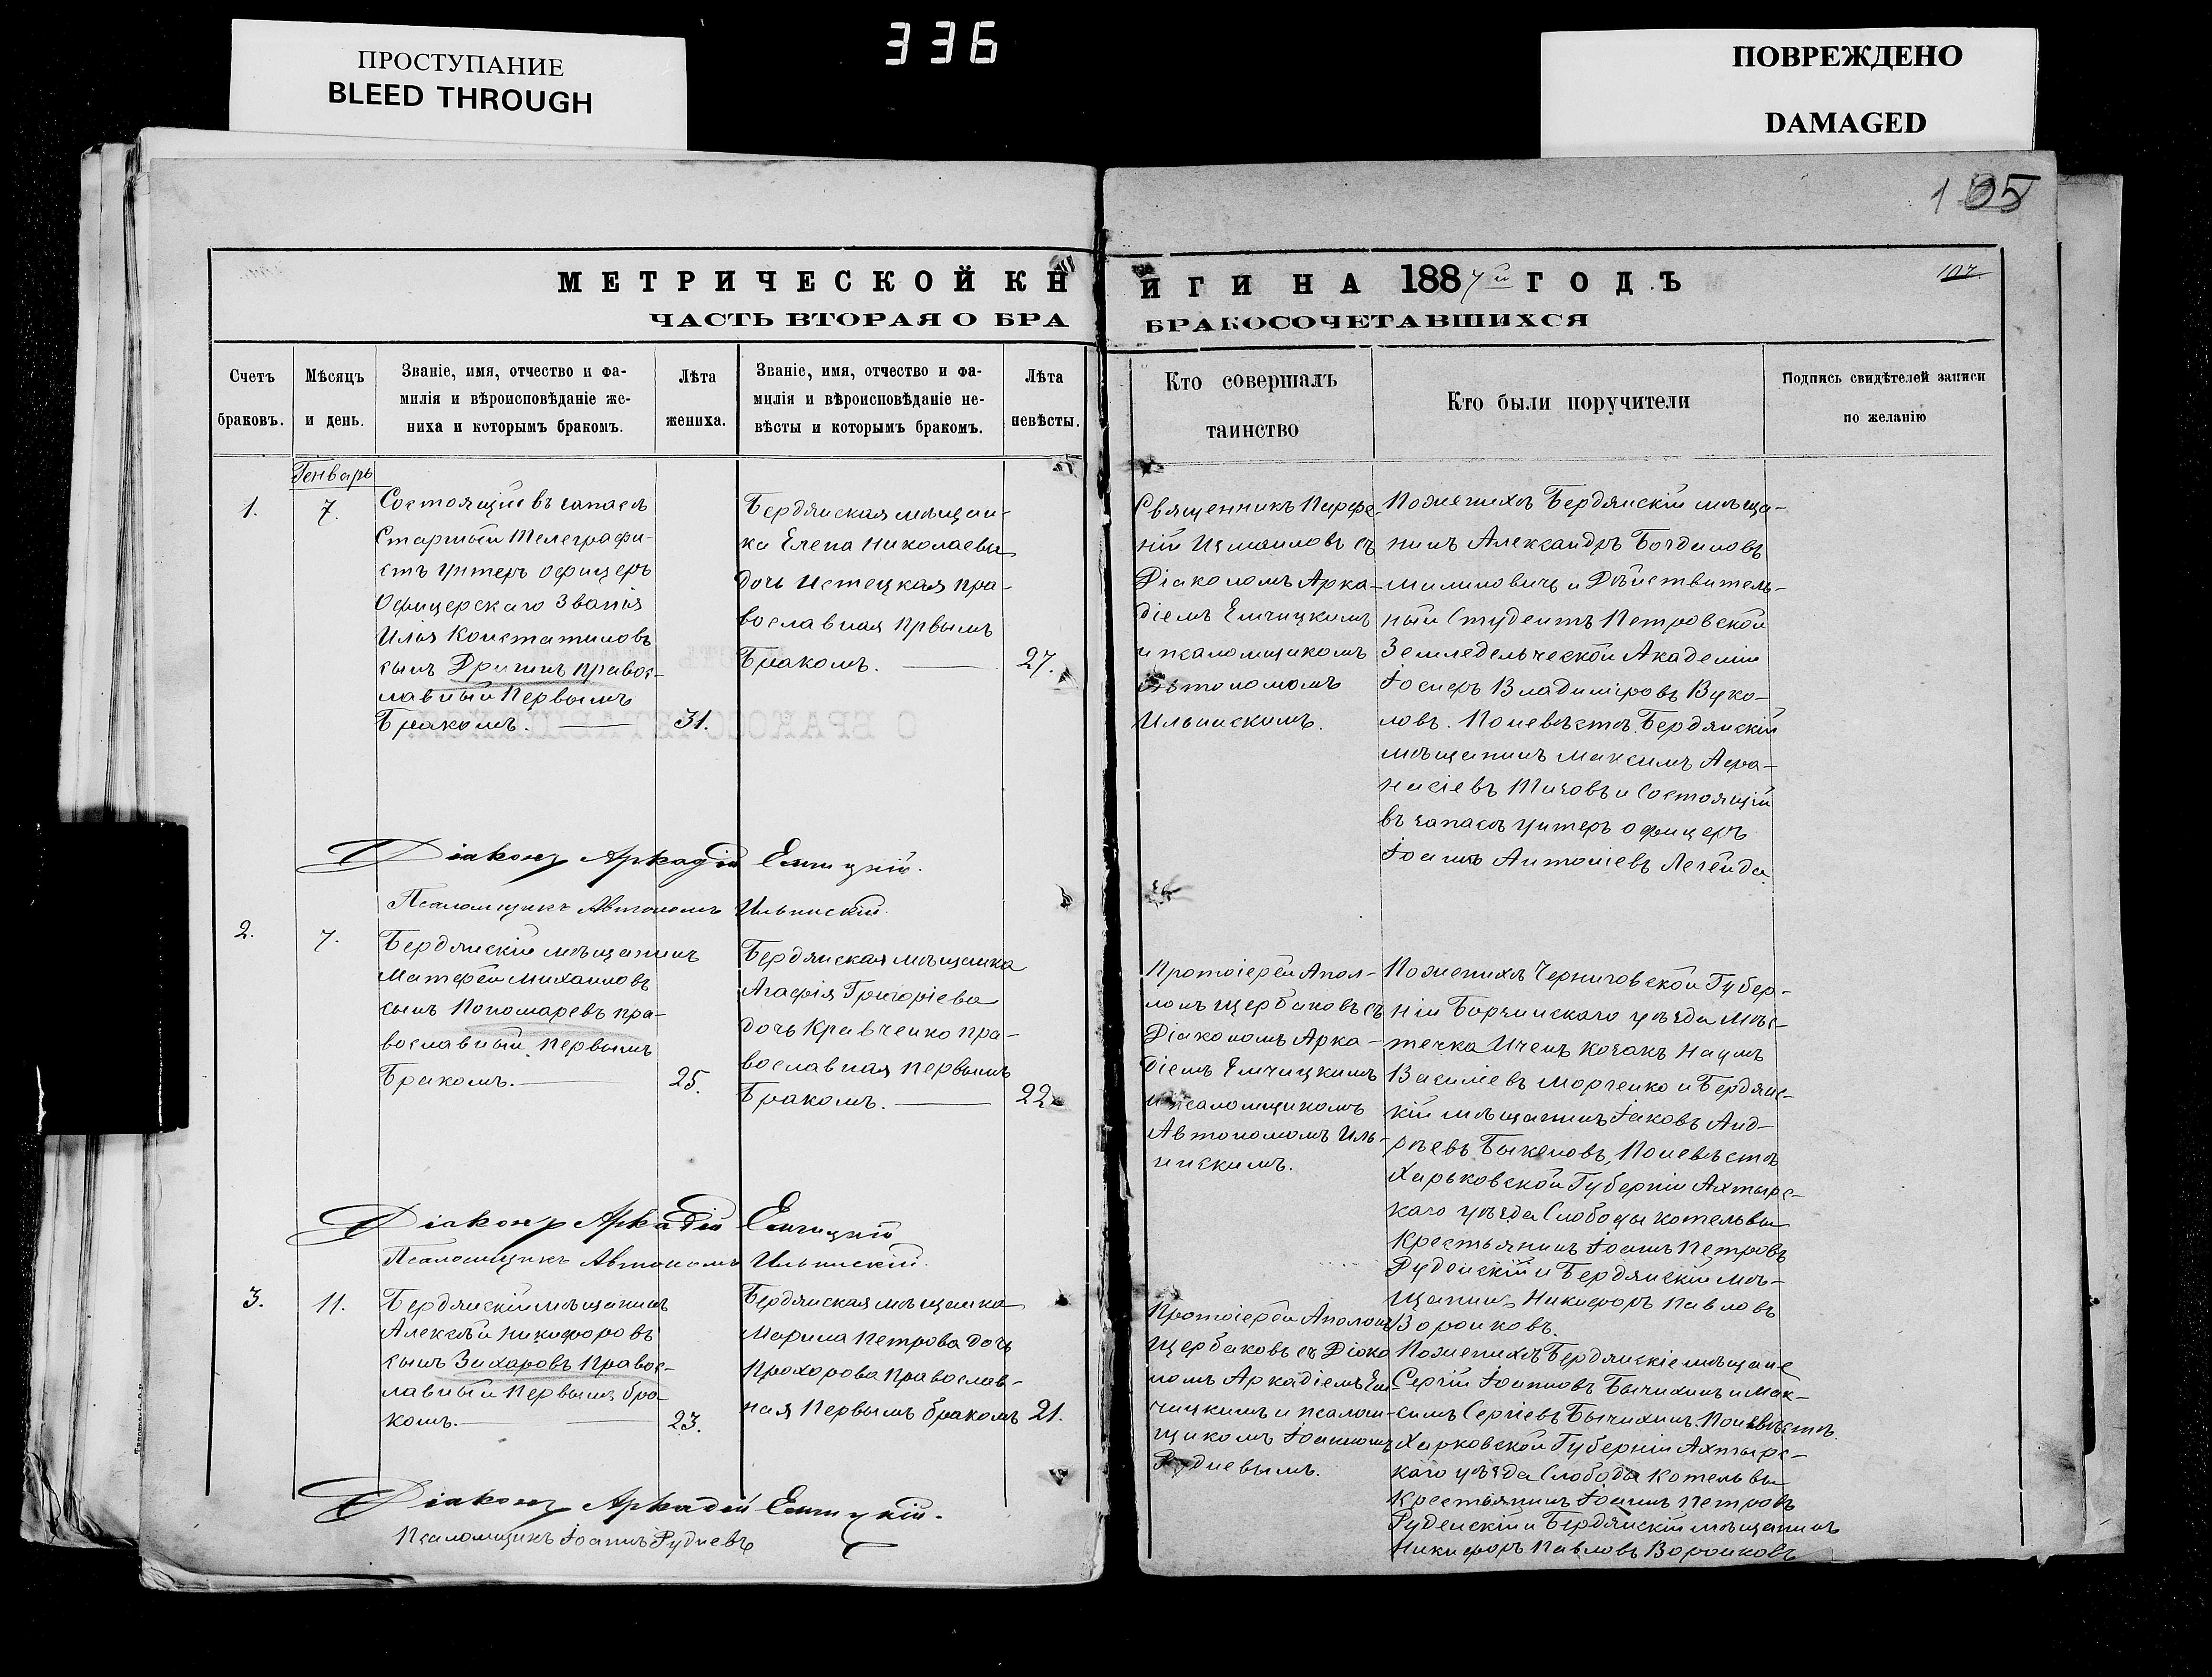 ПРОСТУПАНИЕ
BLEED THROUGH
336
ПОВРЕЖДЕНО
DAMAGED
105
МЕТРИЧЕСКОЙ КН
ЧАСТЬ ВТОРАЯ О БРА
Счетъ
браковъ.
Мѣсяцъ
и день.
Званіе, имя, отчество и фа-
милія и вѣроисповѣданіе же-
ниха и которымъ бракомъ.
Лѣта
жениха.
Званіе, имя, отчество и фа-
милія и вѣроисповѣданіе не-
вѣсты и которымъ бракомъ.
Лѣта
невѣсты.
ИГИ НА 1887й ГОДЪ
107.
БРАКОСОЧЕТАВШИХСЯ
Кто совершалъ
таинство
Кто были поручители
Подпись свидѣтелей записи
по желанію
Генварь
1.
7.
Состоящій въ запасѣ
Старшій Телеграфи-
стъ унтеръ офицеръ
Офицерскаго Званія
Илья Констатиновъ
сынъ правос-
лавный Первымъ
Бракомъ.
31.
Бердянская мѣщан-
ка Елена Николаева
дочь Истецкая пра-
вославная Првымъ
Бракомъ.
27.
Священникъ Парфе-
ній Измаиловъ съ
Діакономъ Арка-
діемъ Емчицкимъ
и псаломщикомъ
Автономомъ
Ильинскимъ.
Поженихѣ Бердянскій мѣща-
нинъ Александръ Богдановъ
Милиновичъ и Дѣйствитель-
ный Студентъ Петровской
Земледельческой Академіи
Іосифъ Владиміровъ Вуко-
ловъ. Поневѣстѣ Бердянскій
мѣщанинъ Максимъ Афа-
насіевъ Тизовъ и Состоящій
въ запасѣ унтеръ офицеръ
Іоаннъ Антоніевъ Легейда
Діаконъ Аркадій Емчицкій.
Псаломщикъ Автономъ Ильинскій.
2.
7.
Бердянскій мѣщанинъ
Матфей Михаиловъ
сынъ Пономаревъ пра-
вославный Первымъ
Бракомъ.
25.
Бердянская мѣщанка
Агафія Григоріева
дочь Кравченко пра-
вославная первымъ
Бракомъ.
22.
Протоіерей Апол-
лонъ Щербаковъ съ
Діакономъ Арка-
діемъ Емчицкимъ
и псаломщикомъ
Автономомъ Иль-
инскимъ.
Поженихѣ Черниговской Губер-
ніи Борзинскаго уѣзда Мѣс-
течка Ичень козакъ Наумъ
Василіевъ Марченко и Бердянс-
кій мѣщанинъ Іаковъ Анд-
рѣевъ Быкеновъ, Поневѣстѣ
Харьковской Губерніи Ахтырс-
каго уѣзда Слободы Котельвы
Крестьянинъ Іоаннъ Петровъ
Руденскій и Бердянскій Мѣ-
щанинъ Никифоръ Павловъ
Воронковъ.
Діаконъ Аркадій Емчицкій
Псаломщикъ Автономъ Ильинскій.
3.
11.
Бердянскій мѣщанинъ
Алексѣй Никифоровъ
сынъ Захаровъ Правос-
лавный Первымъ бра-
комъ.
23.
Бердянская мѣщанка
Марина Петрова дочь
Прохорова Православ-
ная Первымъ бракомъ
21.
Протоіерей Аполонъ
Щербаковъ съ Діако
номъ Аркадіемъ Ем-
чицкимъ и псалом-
щикомъ Іоанномъ
Рудневымъ.
Поженихѣ Бердянскіе мѣщане
Сергій Іоанновъ Бычихинъ и Мак-
симъ Сергіевъ Бычихинъ. Поневѣстѣ
Харковской Губерніи Ахтырс-
каго уѣзда Слободы Котельвы
Крестьянинъ Іоаннъ Петровъ
Руденскій и Бердянскій мѣщанинъ
Никифоръ Павловъ Воронковъ
Діаконъ Аркадій Емчицкій.
Псаломщикъ Іоаннъ Рудневъ